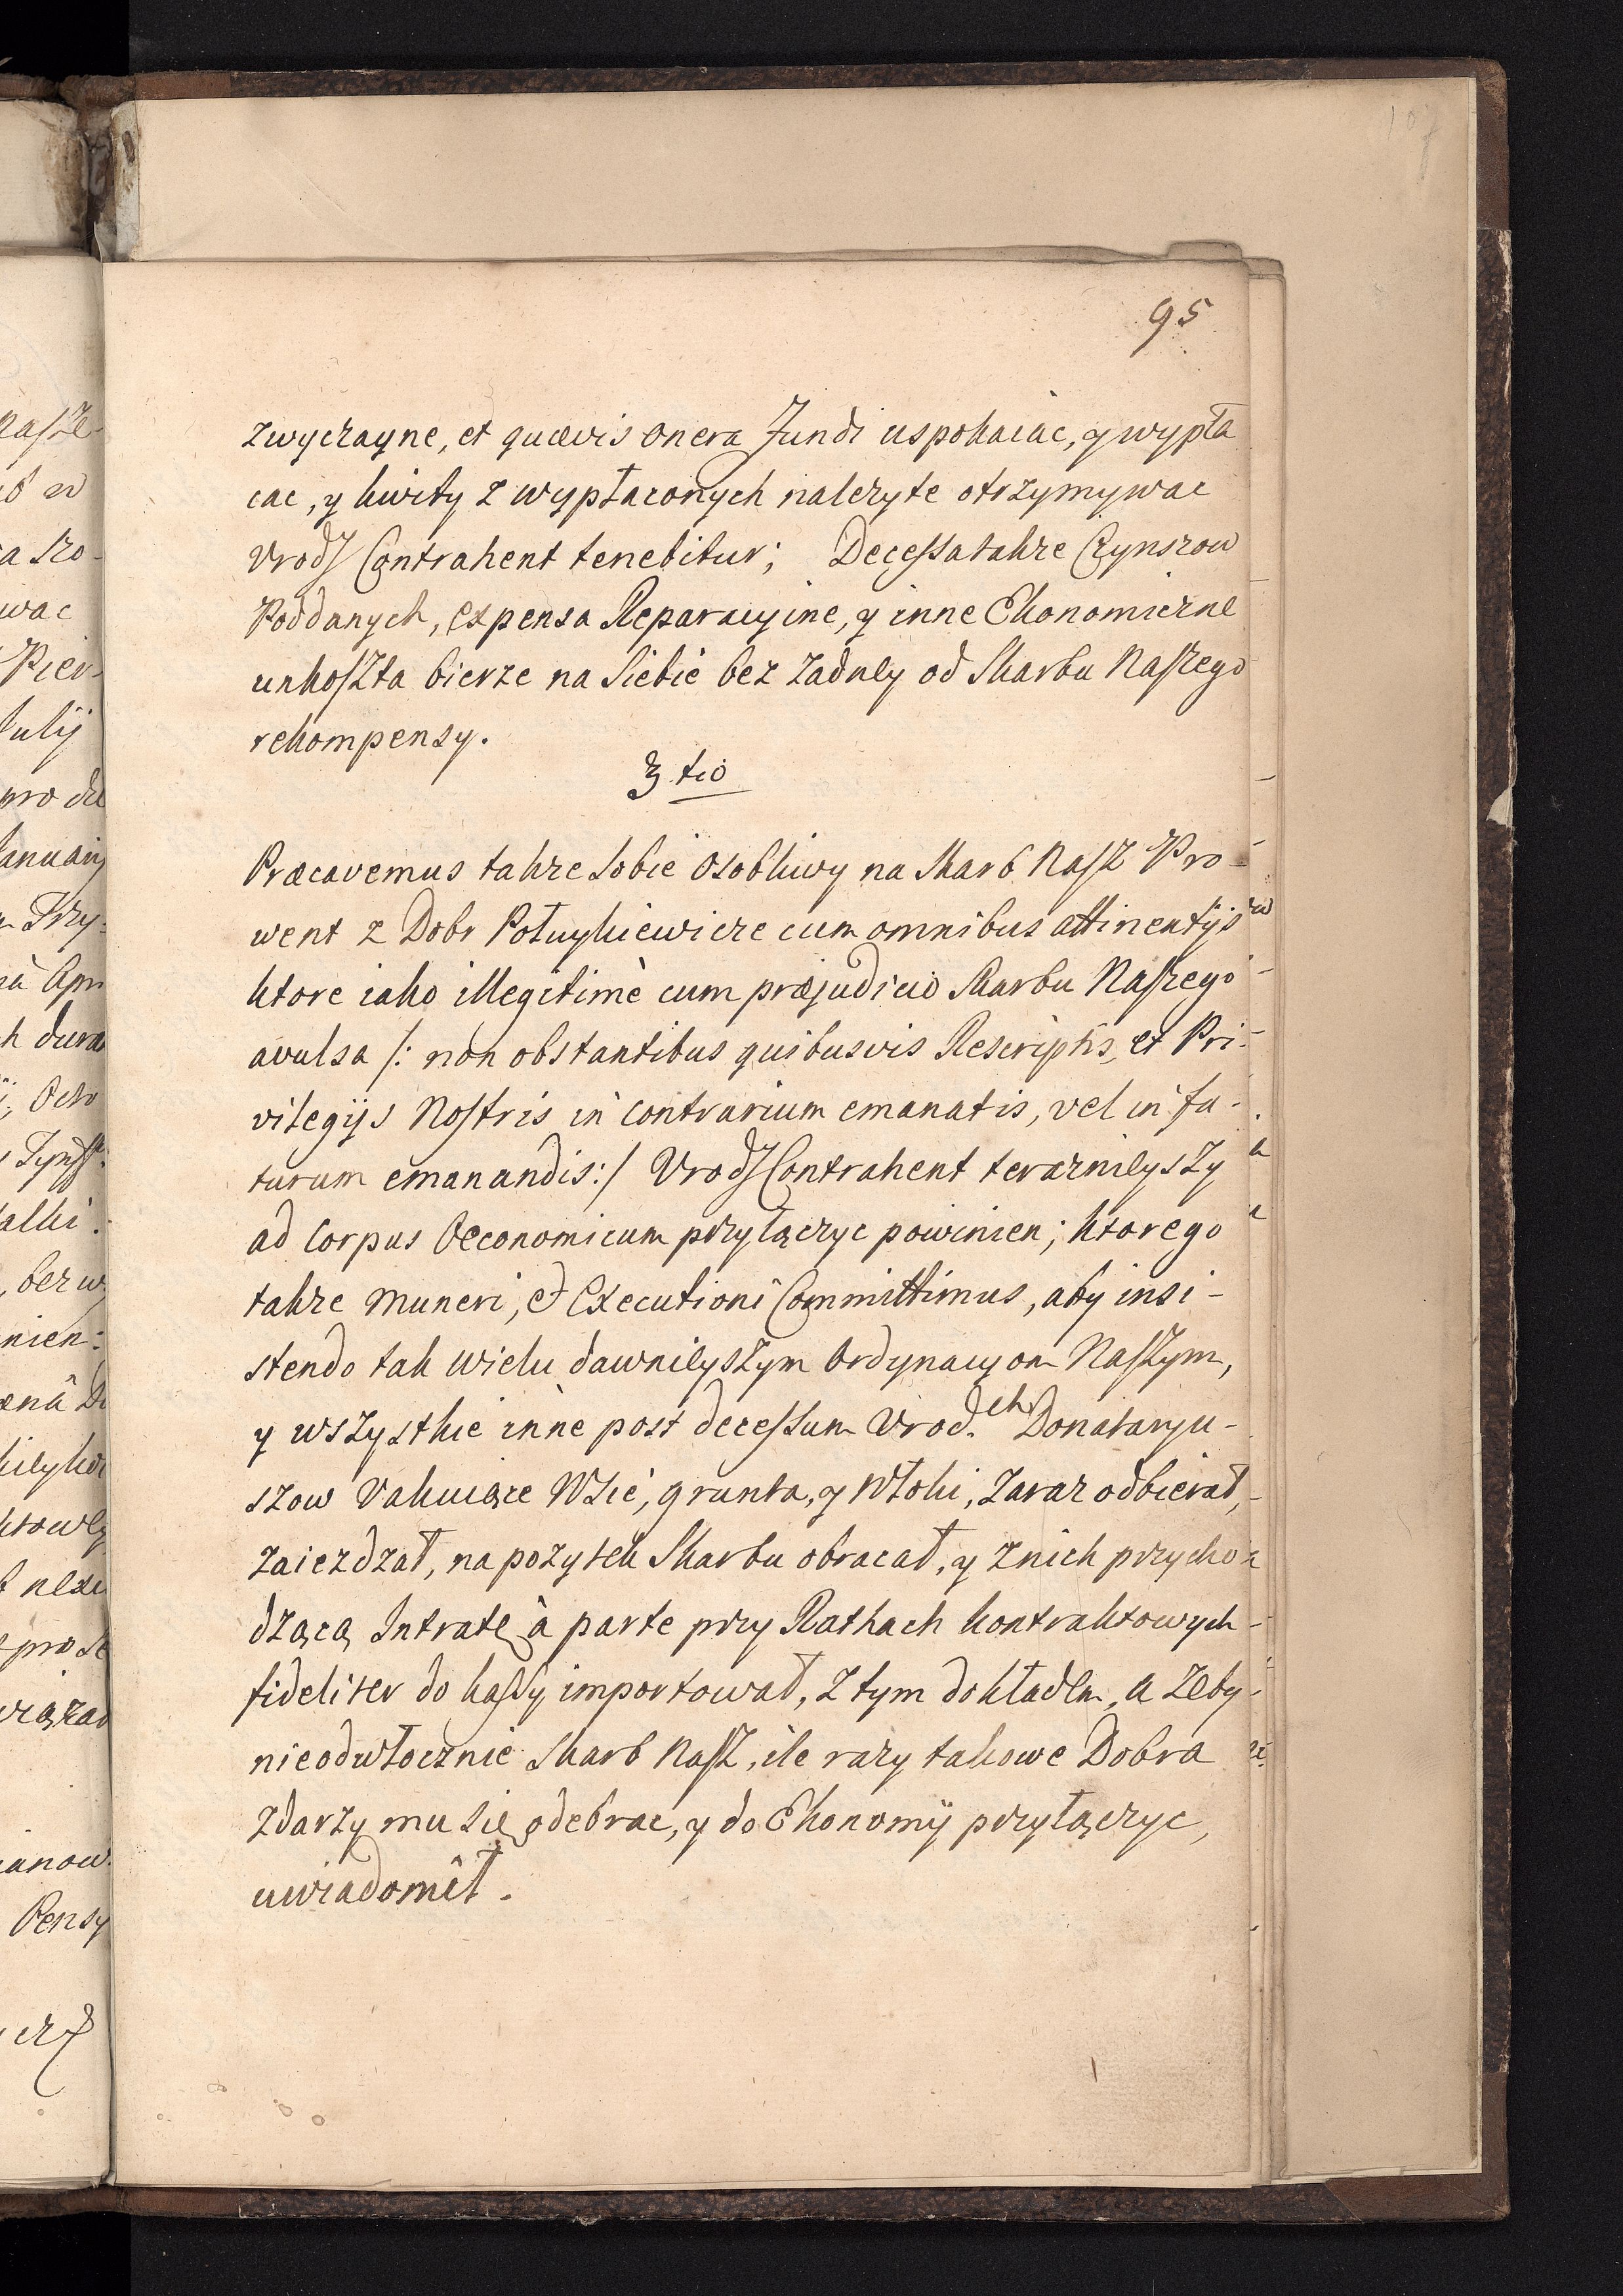 107
95
zwyczayne, et quævis onera Fundi uspokaiac, y wypła
cac, y kwity z wypłaconych nalezyte otrzymywac
Urodz Contrahent tenebitur; Decessa takze Czynszow
Poddanych, expensa Reparacyine, y inne Ekonomiczne
unkoszta bierze na Siebie bez zadney od Skarbu Naszego
rekompensy.
3 tio
Præcavemus takze Sobie Osobliwy na Skarb Nasz Pro-
went z Dobr Połuykiewicze cum omnibus attinentijs
ktore iako illegitimè cum præjudicio Skarbu Naszego
avulsa /: non obstantibus quibusvis Rescriptis, et Pri-
vilegijs Nostris in contrarium emanatis, vel in fu-
turum emanandis:/ Urodz Contrahent teraznieyszy
ad Corpus Oeconomicum przyłączyc powinien; ktorego
takze muneri, et Executioni Committimus, aby insi-
stendo tak wielu dawnieyszym Ordynacyom Naszym,
y wszystkie inne post decessum Urod.ch Donataryu-
szow Vakuiące Wsie, grunta, y Włoki, zaraz odbierał,
zaiezdzał, na pozytek Skarbu obracał, y z nich przycho-
dzącą Intratę à parte przy Ratkach kontraktowych
fideliter do kassy importował, z tym dokładem, a zeby
nieodwłocznie Skarb Nasz, ile razy takowe Dobra
zdarzy mu się odebrac, y do Ekonomij przyłączyc,
uwiadomił.